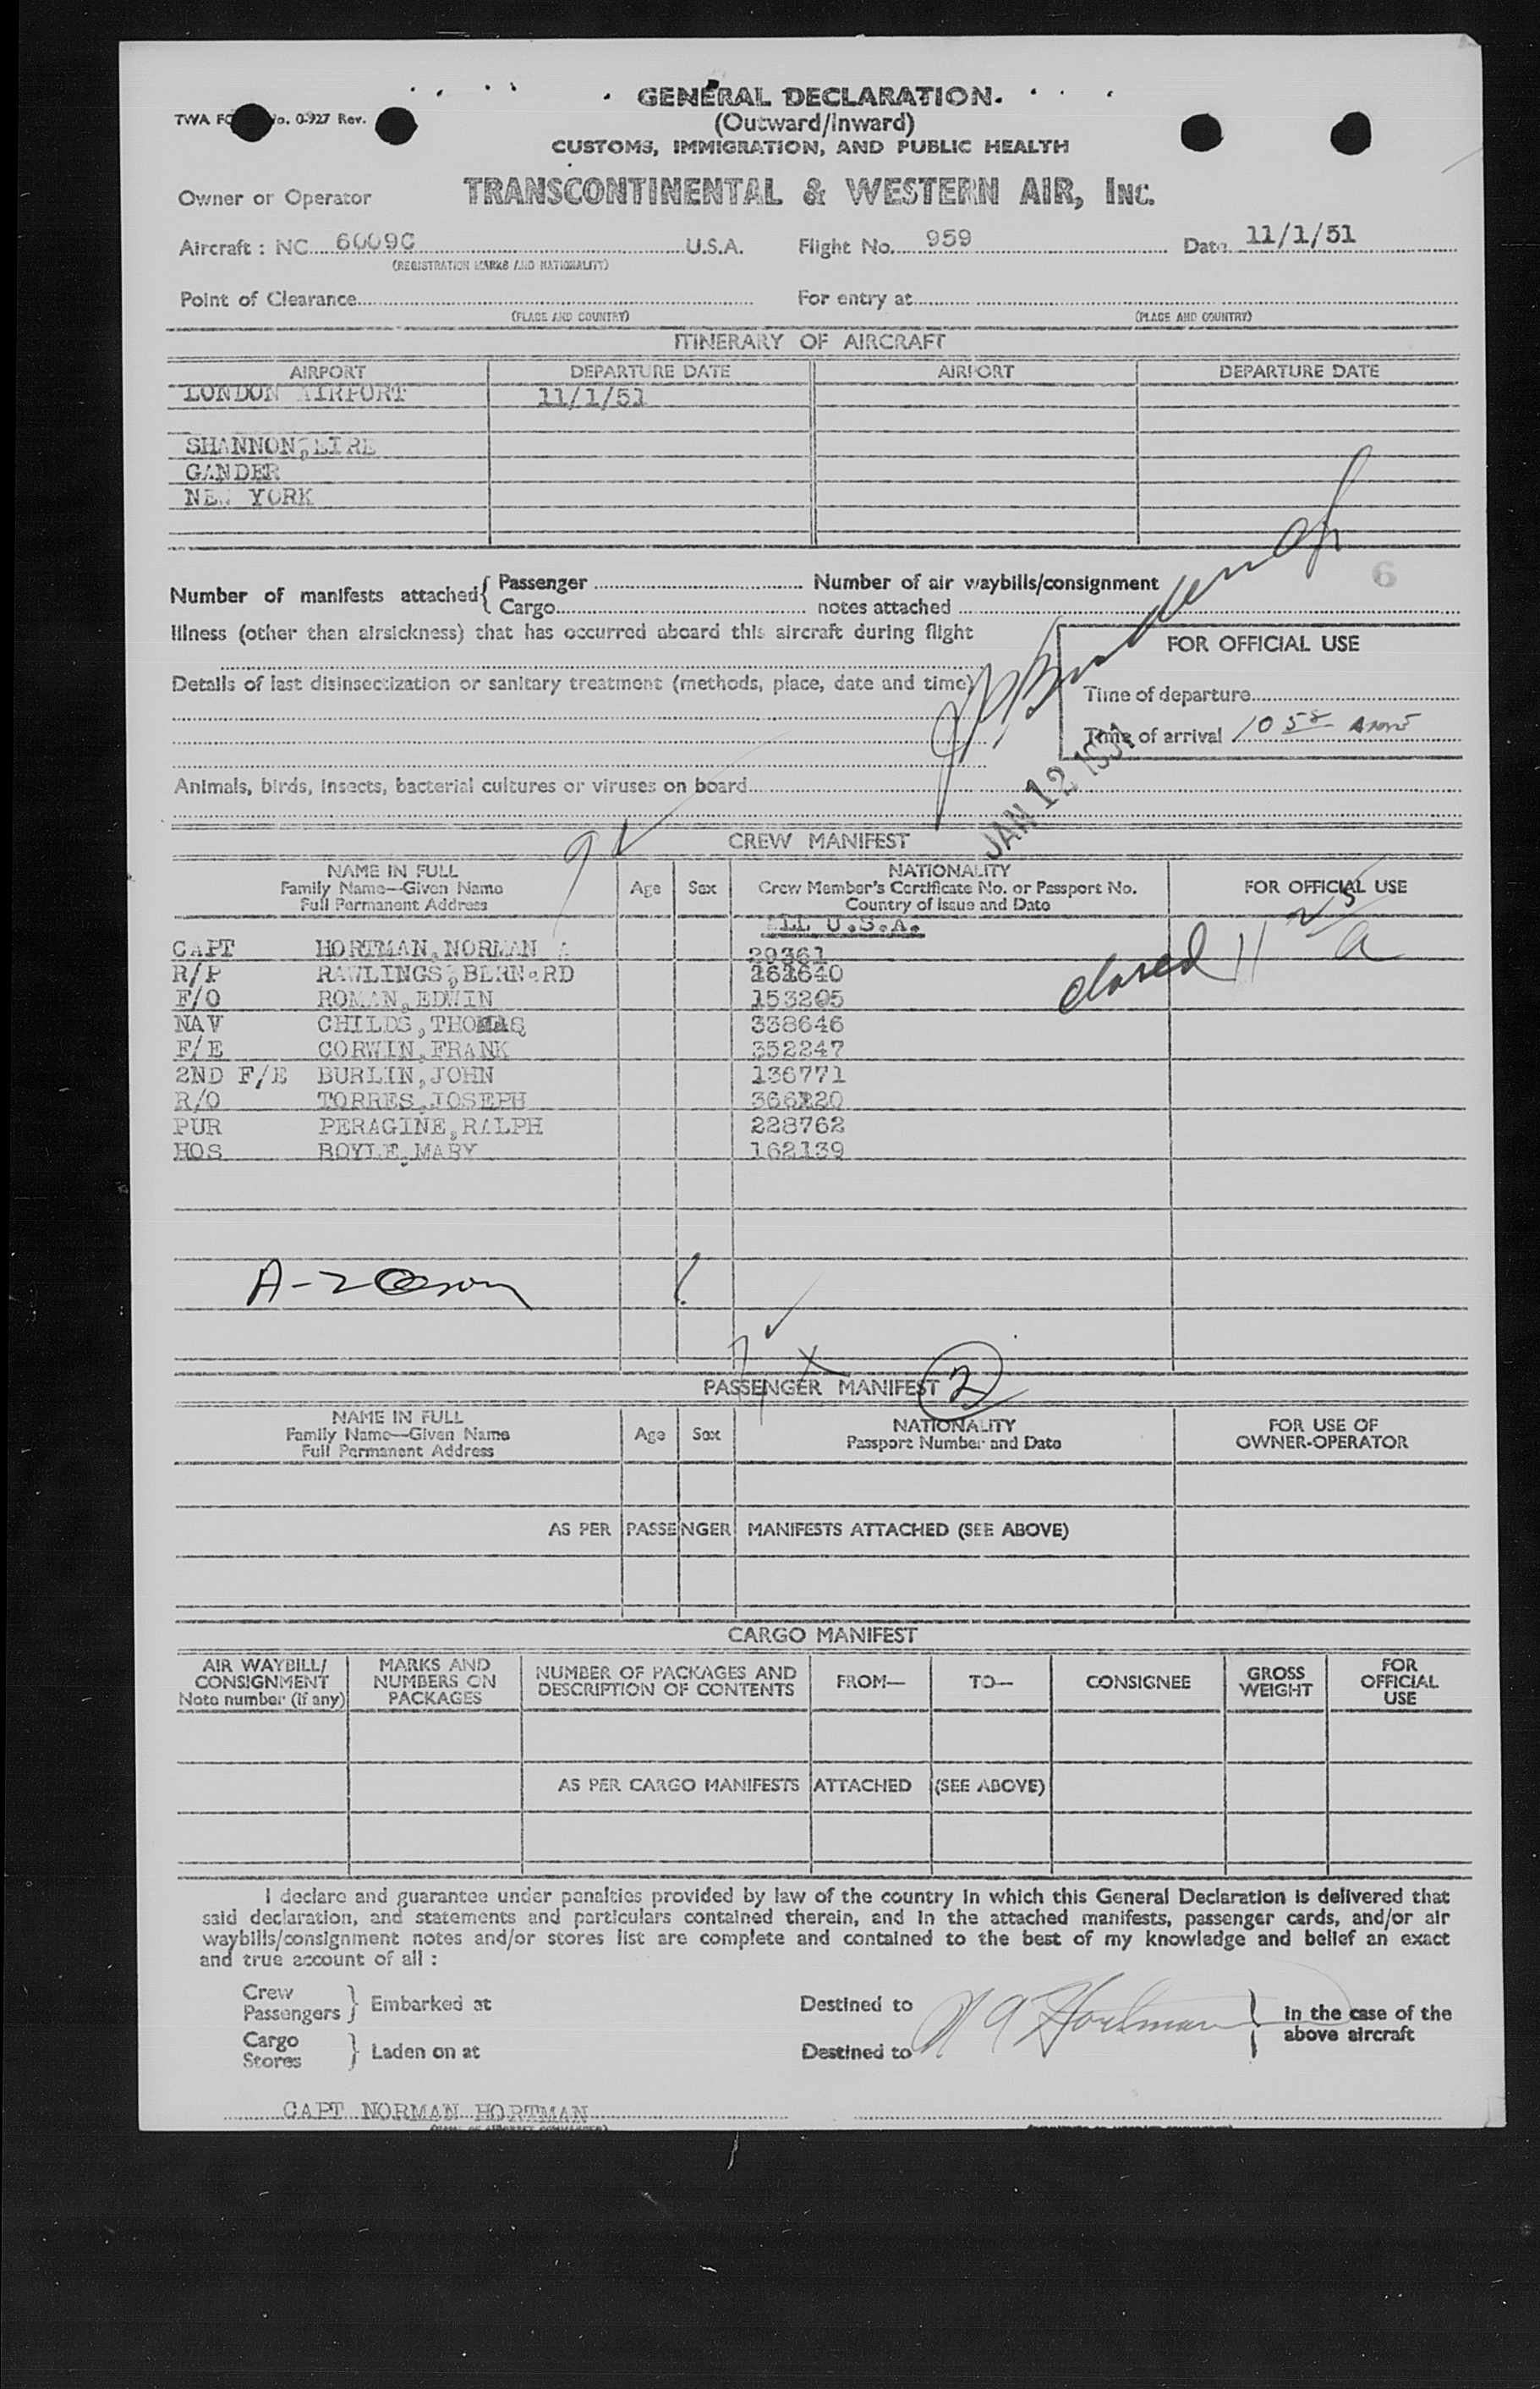 GENERAL DECLARATION.
(Outward/Inward)
TWA No. 0-927 Rev.
CUSTOMS, IMMIGRATION, AND PUBLIC HEALTH
Owner or Operator TRANSCONTINENTAL & WESTERN AIR, INC.
Aircraft : NC 6009C U.S.A. Flight No. 959 Date 11/1/51
(REGISTRATION MARKS AND NATIONALITY)
Point of Clearance For entry at
(PLACE AND COUNTRY) (PLACE AND COUNTRY)
ITINERARY OF AIRCRAFT
AIRPORT DEPARTURE DATE AIRPORT DEPARTURE DATE
LONDON AIRPORT 11/1/51
SHANNON, EIRE
GANDER
NEW YORK
6
Number of manifests attached { Passenger Number of air waybills/consignment
Cargo notes attached
Illness (other than airsickness) that has occurred aboard this aircraft during flight
FOR OFFICIAL USE
Details of last disinsectization or sanitary treatment (methods, place, date and time)
Time of departure
Time of arrival 10 55
JAN 12 1951
Animals, birds, insects, bacterial cultures or viruses on board
CREW MANIFEST
9
NAME IN FULL NATIONALITY
Family Name—Given Name Age Sex Crew Member's Certificate No. or Passport No. FOR OFFICIAL USE
Full Permanent Address Country of Issue and Date
ALL U.S.A.
CAPT HORTMAN, NORMAN A 29361
closed 11 25 a
R/P RAWLINGS, BERNARD 161640
F/O ROMAN, EDWIN 153205
NAV CHILDS, THOMAS 338646
F/E CORWIN, FRANK 352247
2ND F/E BURLIN, JOHN 136771
R/O TORRES, JOSEPH 366220
PUR PERAGINE, RALPH 228762
HOS BOYLE, MARY 162139
PASSENGER MANIFEST 2
NAME IN FULL NATIONALITY FOR USE OF
Family Name—Given Name Age Sex Passport Number and Date OWNER-OPERATOR
Full Permanent Address
AS PER PASSENGER MANIFESTS ATTACHED (SEE ABOVE)
CARGO MANIFEST
AIR WAYBILL/ MARKS AND NUMBER OF PACKAGES AND FROM— TO— CONSIGNEE GROSS FOR
CONSIGNMENT NUMBERS ON DESCRIPTION OF CONTENTS WEIGHT OFFICIAL
Note number (if any) PACKAGES USE
AS PER CARGO MANIFESTS ATTACHED (SEE ABOVE)
I declare and guarantee under penalties provided by law of the country in which this General Declaration is delivered that
said declaration, and statements and particulars contained therein, and in the attached manifests, passenger cards, and/or air
waybills/consignment notes and/or stores list are complete and contained to the best of my knowledge and belief an exact
and true account of all :
Crew
Passengers } Embarked at Destined to N A Hortman } in the case of the
Cargo above aircraft
Stores } Laden on at Destined to
CAPT NORMAN HORTMAN